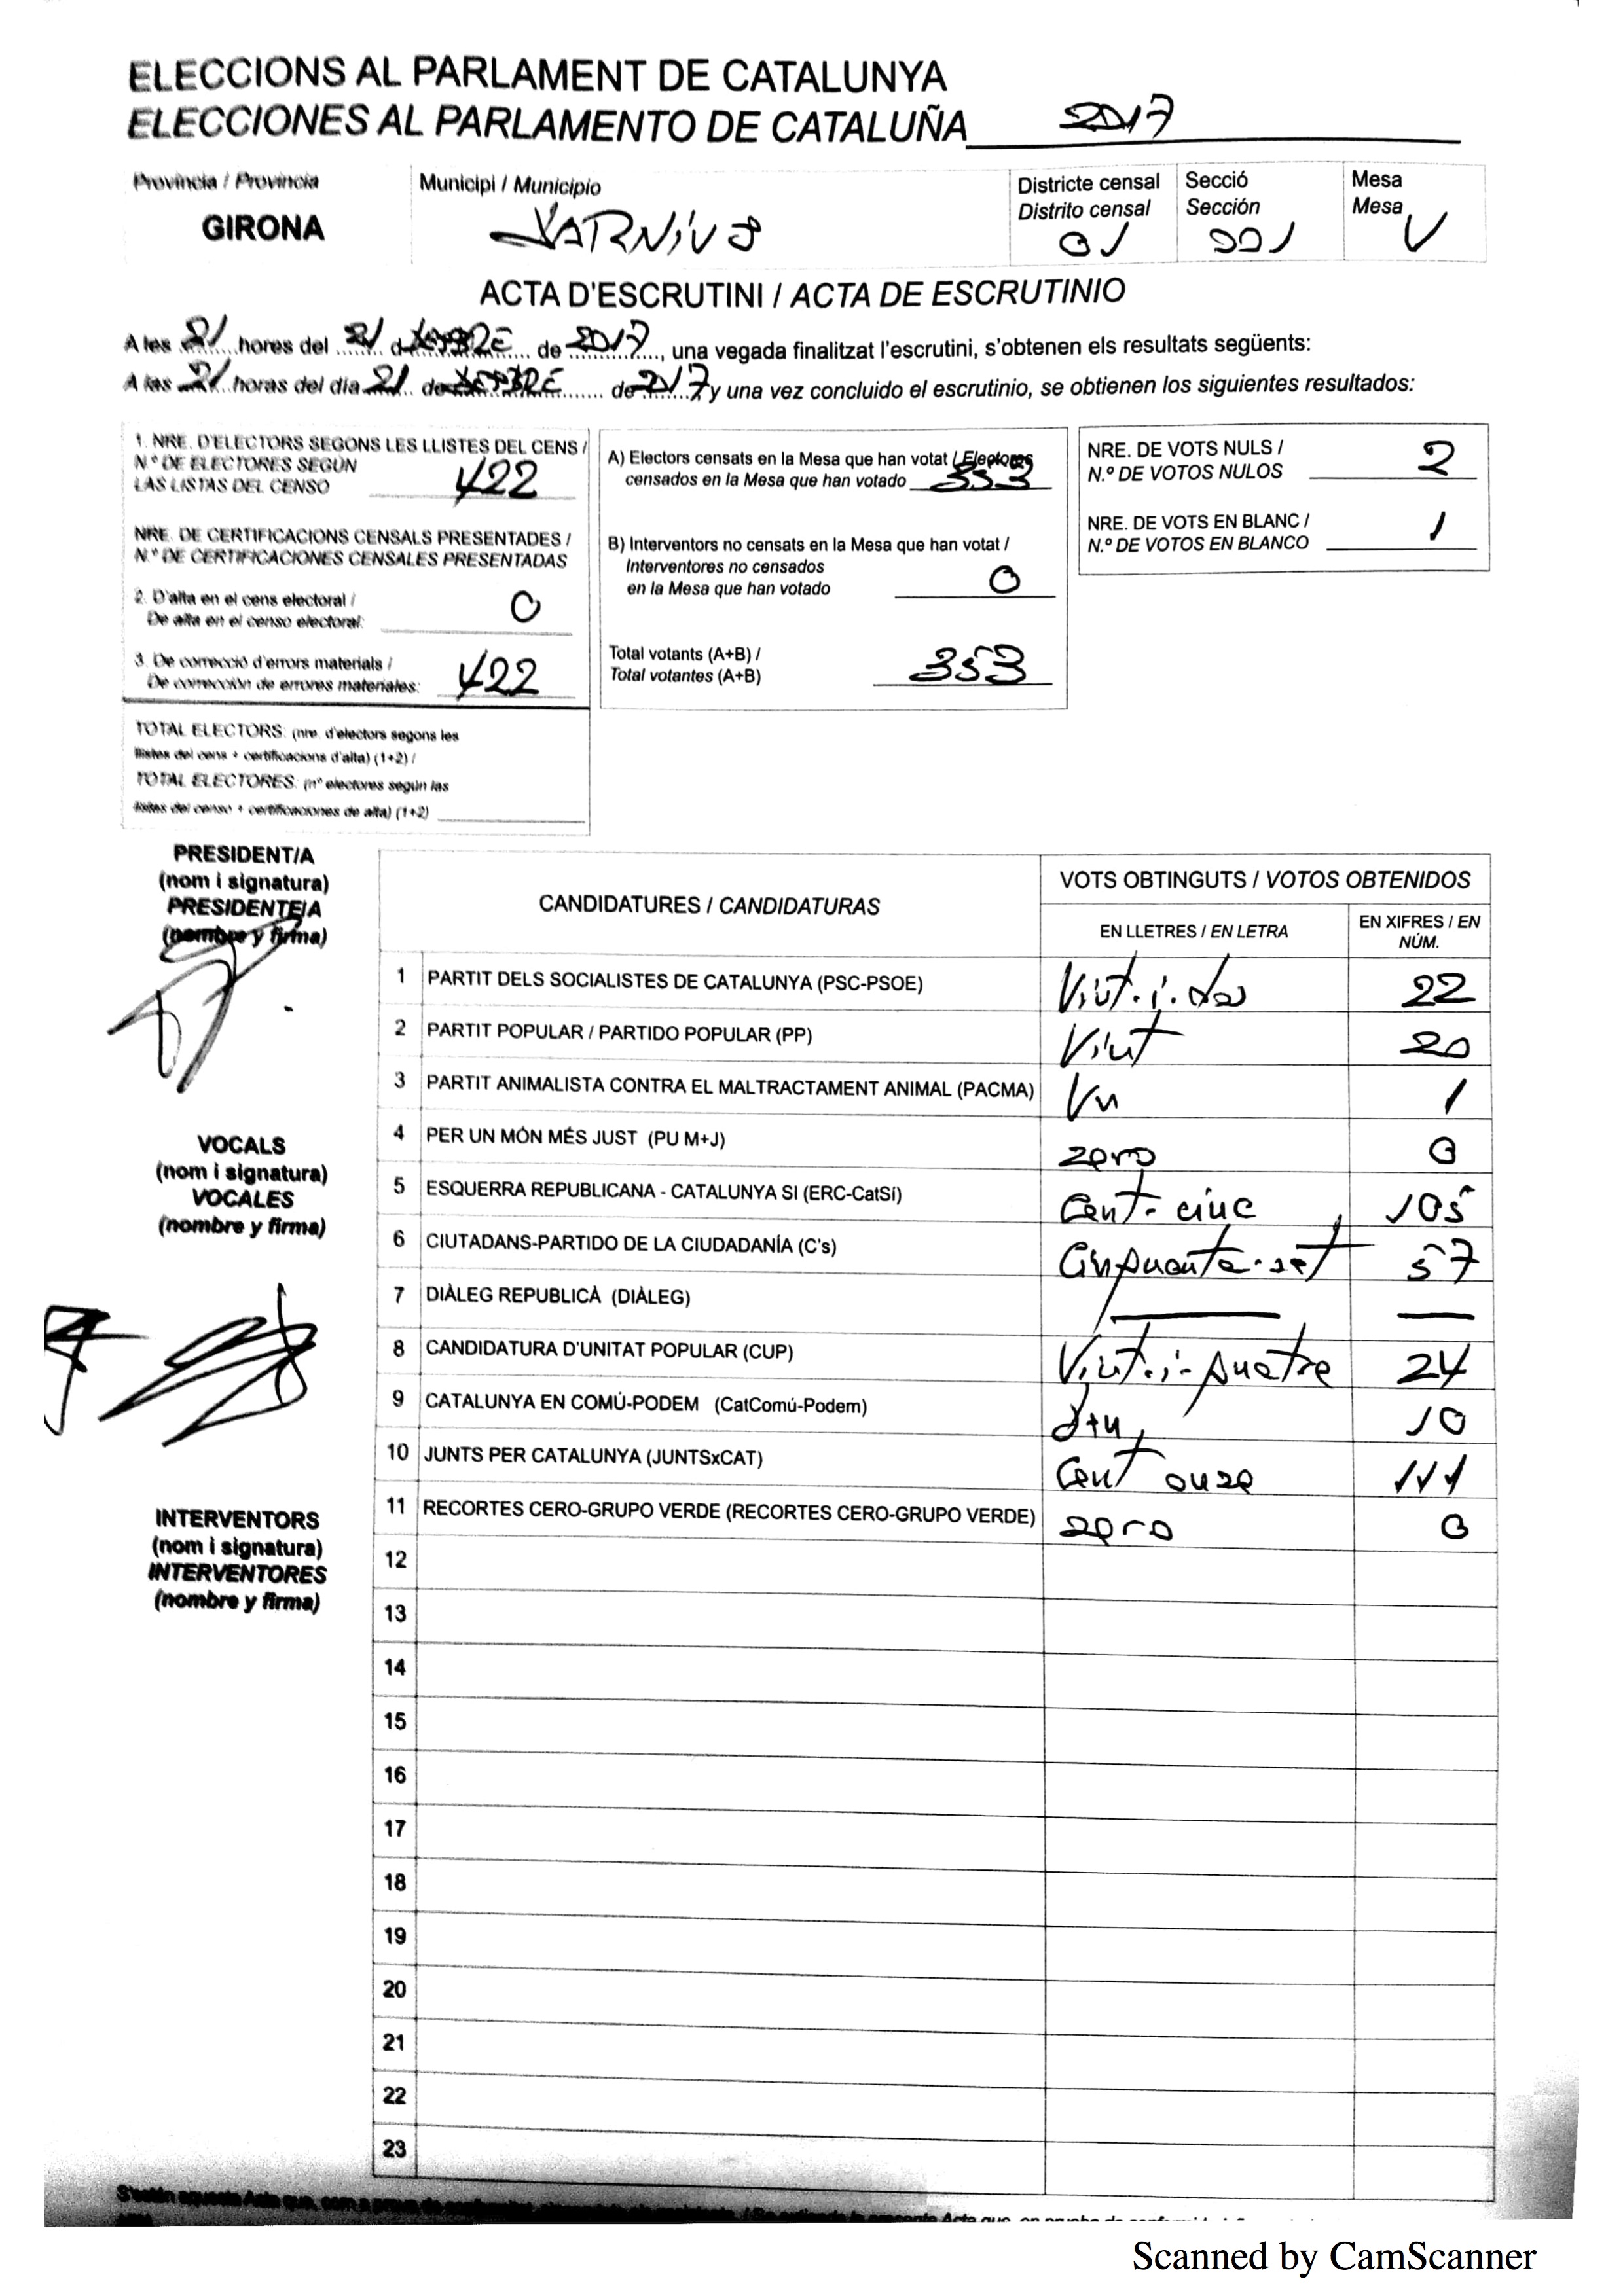 ELECCIONS AL PARLAMENT DE CATALUNYA
ELECCIONES AL PARLAMENTO DE CATALUÑA 2017
Província / Provincia
GIRONA
Municipi / Municipio
Districte censal
Distrito censal
01
Secció
Sección
001
Mesa
Mesa
U
ACTA D'ESCRUTINI / ACTA DE ESCRUTINIO
A les 21 hores del 21 d de 2017, una vegada finalitzat l'escrutini, s'obtenen els resultats següents:
A las 21 horas del día 21 de de 2017 y una vez concluido el escrutinio, se obtienen los siguientes resultados:
1. NRE. D'ELECTORS SEGONS LES LLISTES DEL CENS /
N.º DE ELECTORES SEGÚN
LAS LISTAS DEL CENSO 422
NRE. DE CERTIFICACIONS CENSALS PRESENTADES /
N.º DE CERTIFICACIONES CENSALES PRESENTADAS
2. D'alta en el cens electoral /
De alta en el censo electoral: 0
3. De correcció d'errors materials /
De corrección de errores materiales: 422
TOTAL ELECTORS: (nre. d'electors segons les
llistes del cens + certificacions d'alta) (1+2) /
TOTAL ELECTORES: (nº electores según las
listas del censo + certificaciones de alta) (1+2)
A) Electors censats en la Mesa que han votat / Electores
censados en la Mesa que han votado 353
B) Interventors no censats en la Mesa que han votat /
Interventores no censados
en la Mesa que han votado 0
Total votants (A+B) /
Total votantes (A+B) 353
NRE. DE VOTS NULS /
N.º DE VOTOS NULOS 2
NRE. DE VOTS EN BLANC /
N.º DE VOTOS EN BLANCO 1
PRESIDENT/A
(nom i signatura)
PRESIDENTE/A
(nombre y firma)
VOCALS
(nom i signatura)
VOCALES
(nombre y firma)
INTERVENTORS
(nom i signatura)
INTERVENTORES
(nombre y firma)
CANDIDATURES / CANDIDATURAS
VOTS OBTINGUTS / VOTOS OBTENIDOS
EN LLETRES / EN LETRA
EN XIFRES / EN
NÚM.
1 PARTIT DELS SOCIALISTES DE CATALUNYA (PSC-PSOE) Vint.i.dos 22
2 PARTIT POPULAR / PARTIDO POPULAR (PP) Vint 20
3 PARTIT ANIMALISTA CONTRA EL MALTRACTAMENT ANIMAL (PACMA) Un 1
4 PER UN MÓN MÉS JUST (PU M+J) zero 0
5 ESQUERRA REPUBLICANA - CATALUNYA SI (ERC-CatSí) Cent-cinc 105
6 CIUTADANS-PARTIDO DE LA CIUDADANÍA (C's) Cinquanta-set 57
7 DIÀLEG REPUBLICÀ (DIÀLEG) — —
8 CANDIDATURA D'UNITAT POPULAR (CUP) Vint.i-quatre 24
9 CATALUNYA EN COMÚ-PODEM (CatComú-Podem) deu 10
10 JUNTS PER CATALUNYA (JUNTSxCAT) Cent onze 111
11 RECORTES CERO-GRUPO VERDE (RECORTES CERO-GRUPO VERDE) zero 0
12
13
14
15
16
17
18
19
20
21
22
23
Scanned by CamScanner